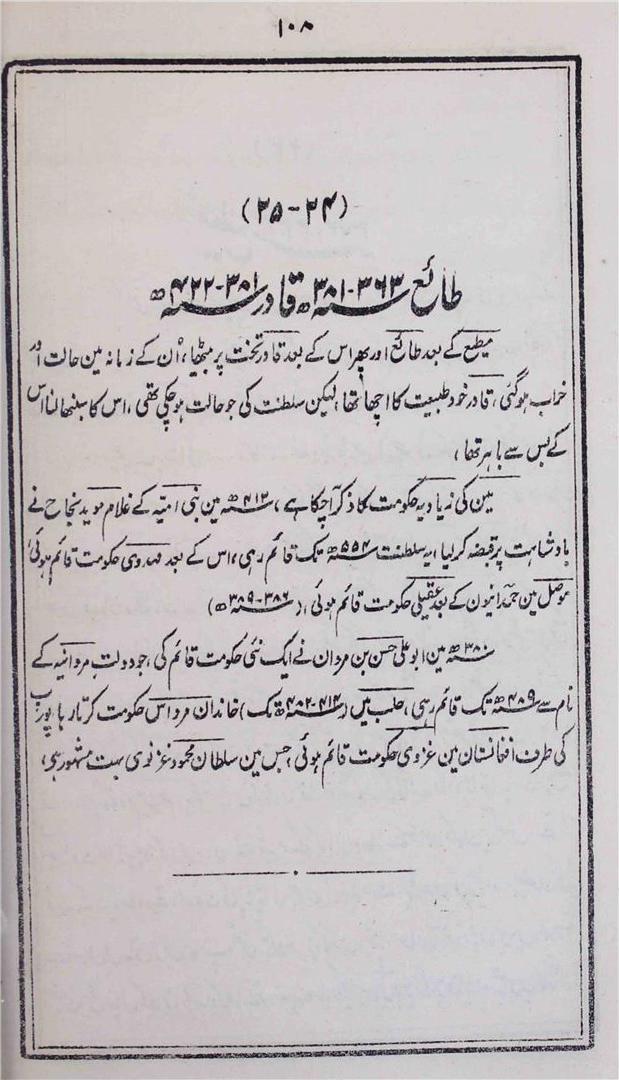 ۱۰۸
(۲۴-۲۵)
طائع ۳۶۳-۳۸۱ھ قادر ۳۸۱-۴۲۲ھ
مطیع کے بعد طائع اور پھر اس کے بعد قادر تخت پر بیٹھا، اُن کے زمانہ مین حالت اور
خراب ہو گئی، قادر خود طبیعت کا اچھا تھا، لیکن سلطنت کی جو حالت ہو چکی تھی، اس کا سنبھالنا اس
کے بس سے باہر تھا،
یمن کی زیادیہ حکومت کا ذکر آچکا ہے، ۴۱۲ھ مین بنی امیہ کے غلام موید نجاح نے
بادشاہت پر قبضہ کر لیا یہ سلطنت ۵۵۴ھ تک قائم رہی، اس کے بعد مہدوی حکومت قائم ہوئی،
موصل مین حمدانیون کے بعد عقیلی حکومت قائم ہوئی، (۳۸۶-۳۸۹ھ)
۳۸۰ھ مین ابو علی حسن بن مروان نے ایک نئی حکومت قائم کی، جو دولت مروانیہ کے
نام سے ۴۸۹ھ تک قائم رہی، حلب میں (۴۱۴-۴۸۲ھ تک) خاندان مرداس حکومت کرتا رہا، پورب
کی طرف افغانستان مین غزوی حکومت قائم ہوئی، جس مین سلطان محمود غزنوی بہت مشہور ہی،